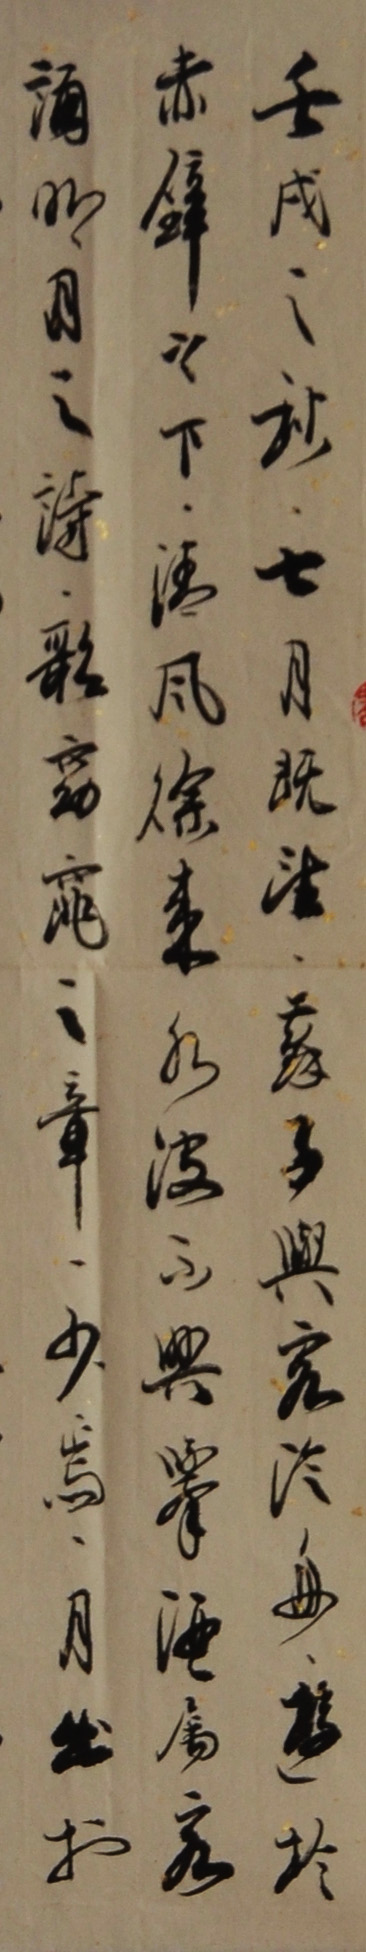 壬戌之秋、七月既望、蘇子與客泛舟、遊於
赤壁之下、清風徐來水波不興舉酒屬客
誦明月之詩、歌窈窕之章、少焉、月出於